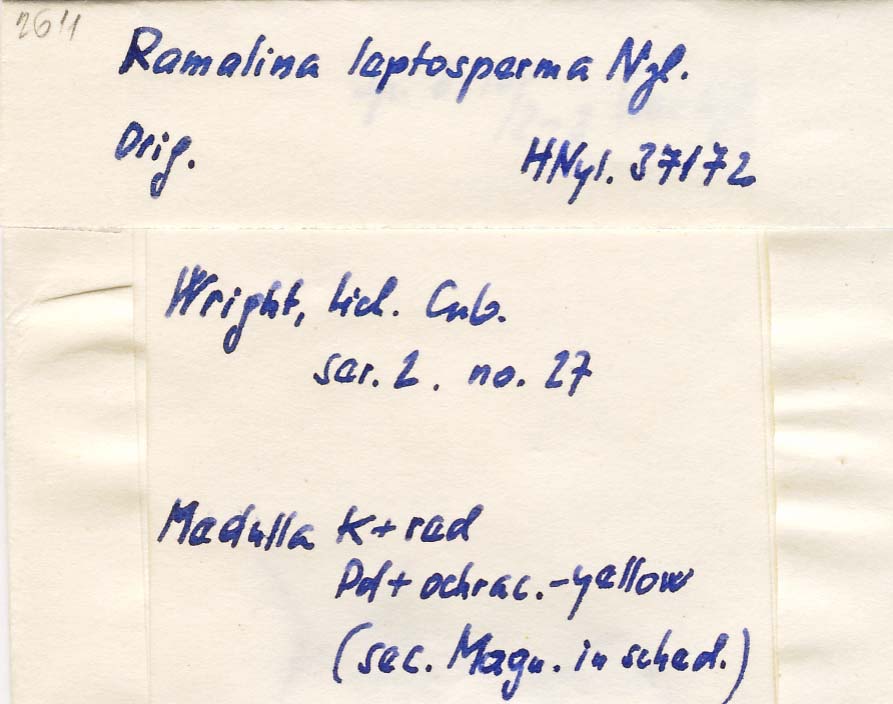 2611
Ramalina leptosperma Nyl.
Orig. HNyl. 37172
Wright, Lich. Cub.
ser. 2. no. 27
Medulla K+ red
Pd+ ochrac.-yellow
(sec. Magn. in sched.)